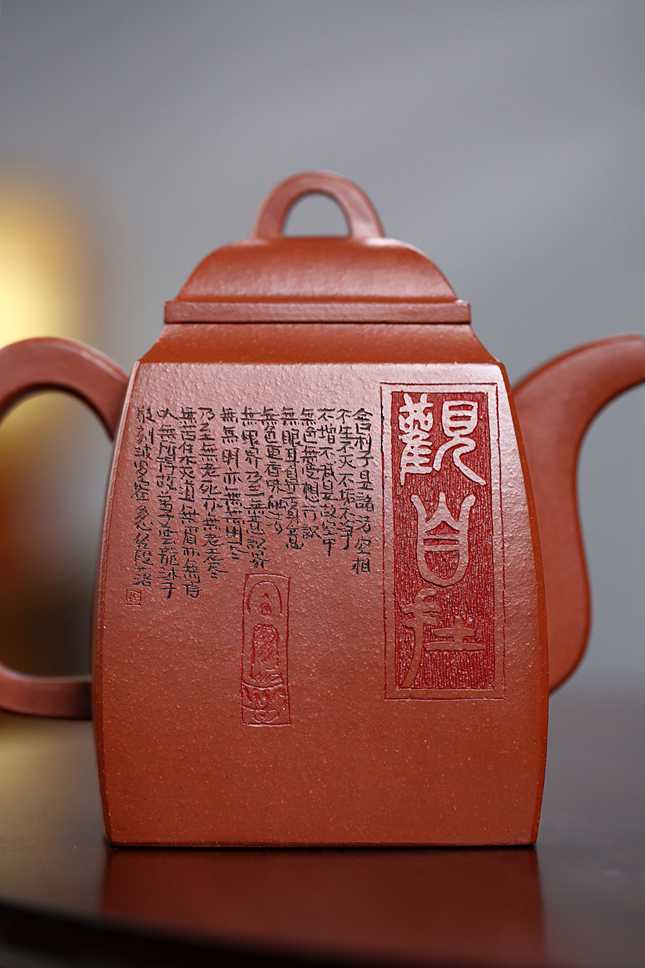 觀自在
舍利子是諸法空相
不生不灭不垢不净
不增不减是故空中
無色無受想行識
無眼耳鼻舌身意
無色聲香味觸法
無眼界乃至無意識界
無無明亦無無明尽
乃至無老死亦無老死尽
無苦集灭道無智亦無得
以無所得故